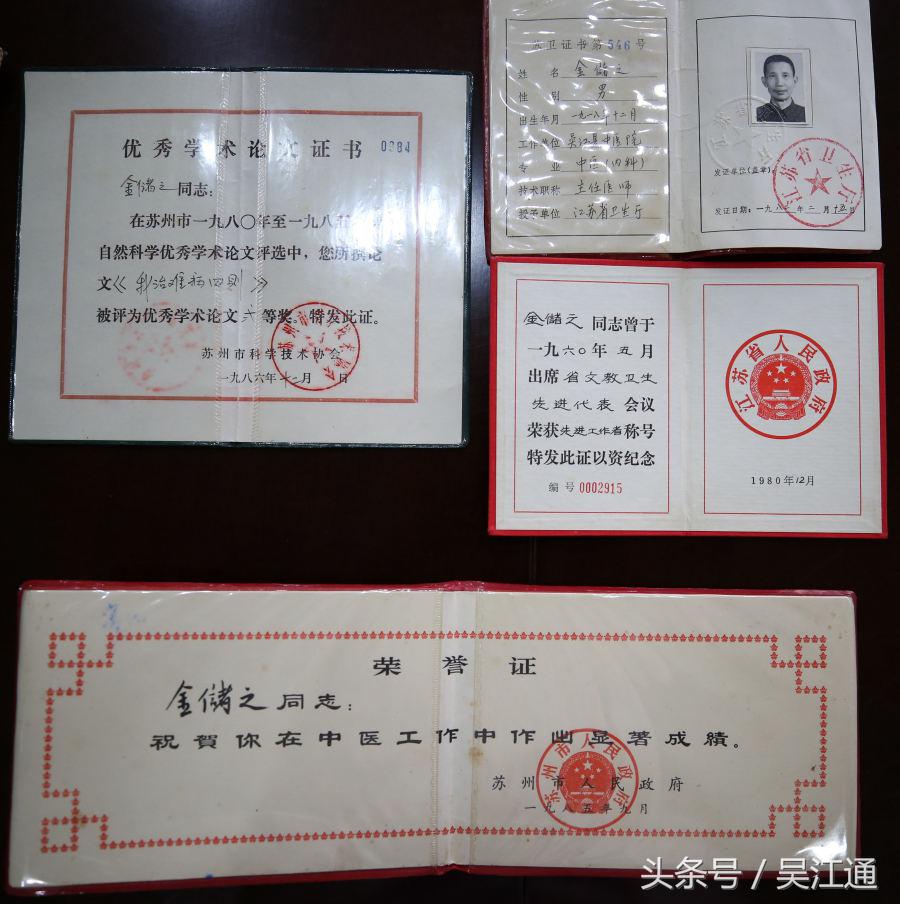 优秀学术论文证书 0084
金儲之同志：
在苏州市一九八〇年至一九八五
自然科学优秀学术论文评选中，您所撰论
文《 治难病四则 》
被评为优秀学术论文 等奖。特发此证。
苏州市科学技术协会
一九八六年十 月 日
苏卫证书第546号
姓 名 金儲之
性 别 男
出生年月 一九一八年十二月
工作单位 吴江县中医院
专 业 中医（内科）
技术职称 主任医师
授予单位 江苏省卫生厅
发证单位（盖章）
江苏省卫生厅
发证日期：一九八 年 二 月 十五日
金儲之 同志曾于
一九六〇年 五 月
出席 省文教卫生
先进代表 会议
荣获先进工作者称号
特发此证以资纪念
编号 0002915
江苏省人民政府
1980年12月
荣誉证
金儲之同志：
祝賀你在中医工作中作出显著成績。
苏州市人民政府
一九八五年九月
苏州市人民政府
头条号 / 吴江通